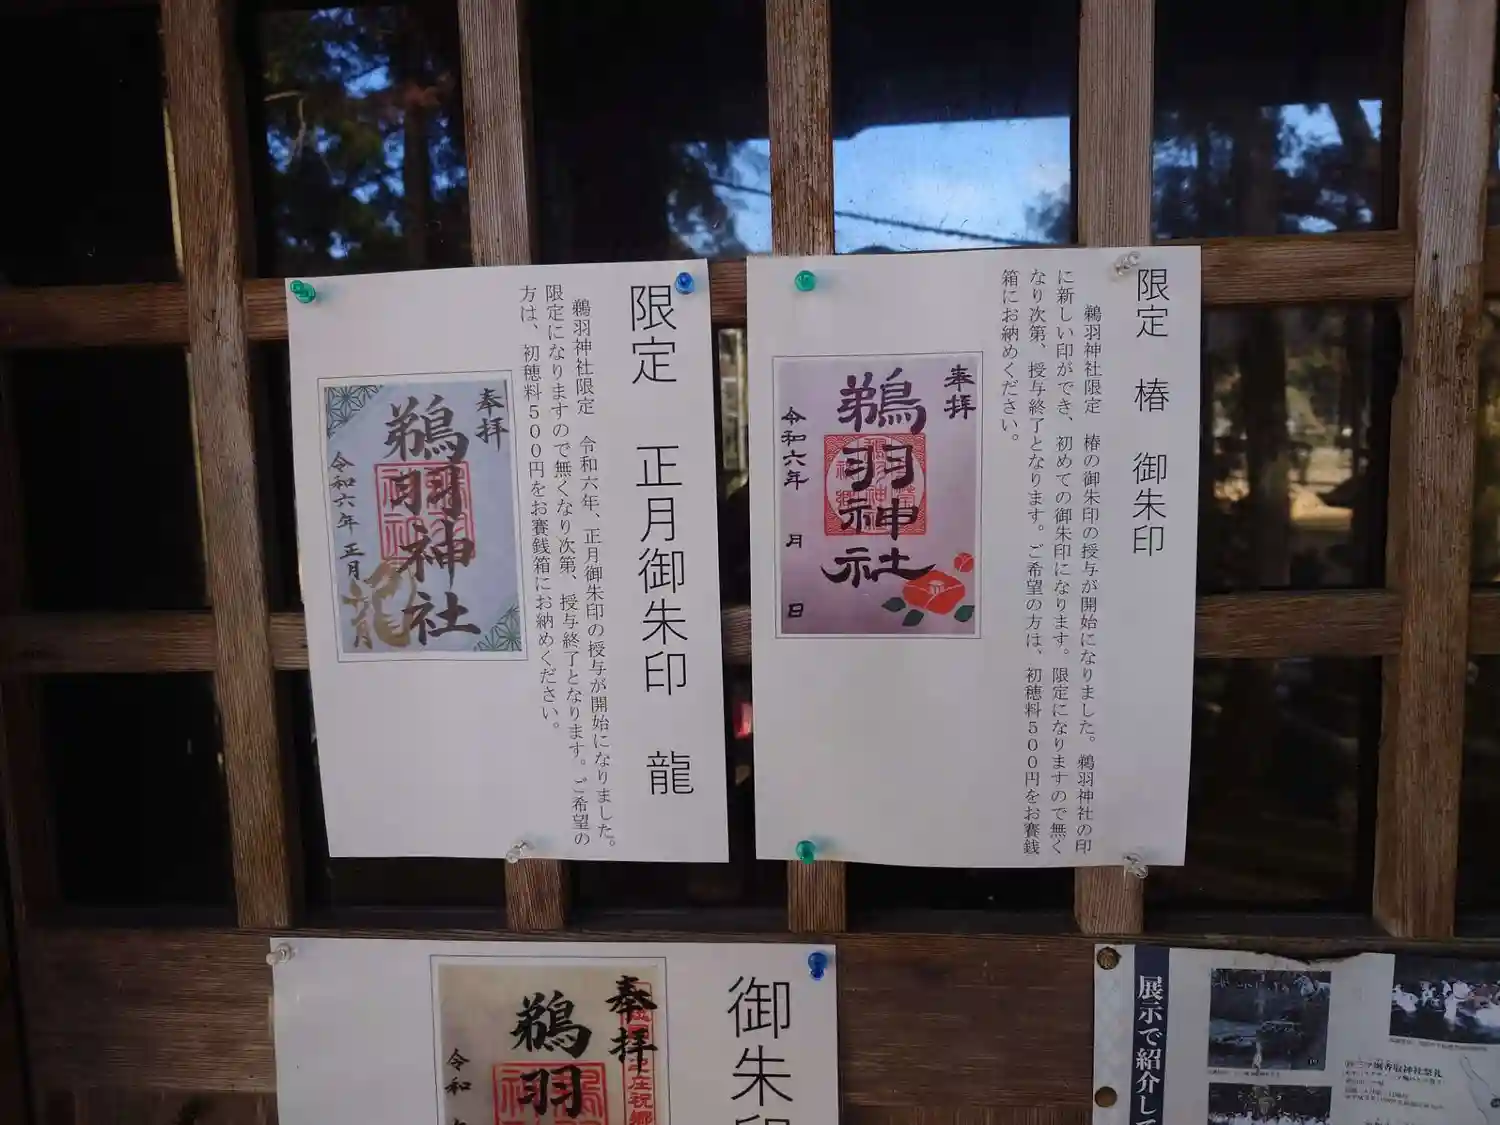 限定　椿　御朱印
鵜羽神社限定　椿の御朱印の授与が開始になりました。鵜羽神社の印
に新しい印ができ、初めての御朱印になります。限定になりますので無く
なり次第、授与終了となります。ご希望の方は、初穂料５００円をお賽銭
箱にお納めください。
奉拝
鵜羽神社
令和六年　月　日
限定　正月御朱印　龍
鵜羽神社限定　令和六年、正月御朱印の授与が開始になりました。
限定になりますので無くなり次第、授与終了となります。ご希望の
方は、初穂料５００円をお賽銭箱にお納めください。
奉拝
鵜羽神社
令和六年　正月
龍
展示で紹介して
御朱印
奉拝
鵜羽
令和